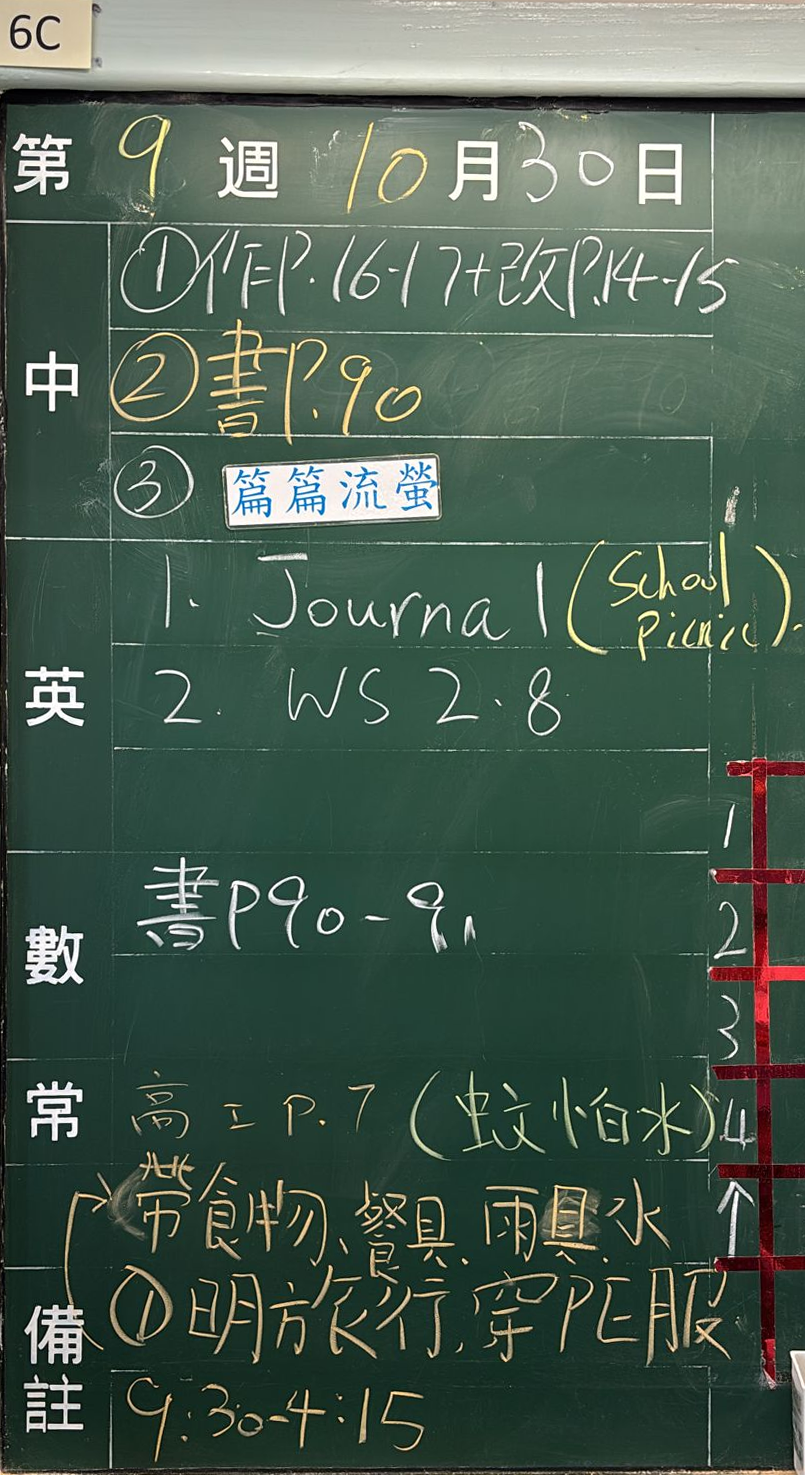 6C
第9週 10月30日
中
①作P.16-17+改P.14-15
②書P.90
③ 篇篇流螢
英
1. Journal (School Picnic).
2. WS 2.8
數
書P90-91
常
高工P.7 (蚊怕水)
備註
帶食物、餐具、雨具、水
①明旅行,穿PE服
9:30-4:15
1
2
3
4
↑